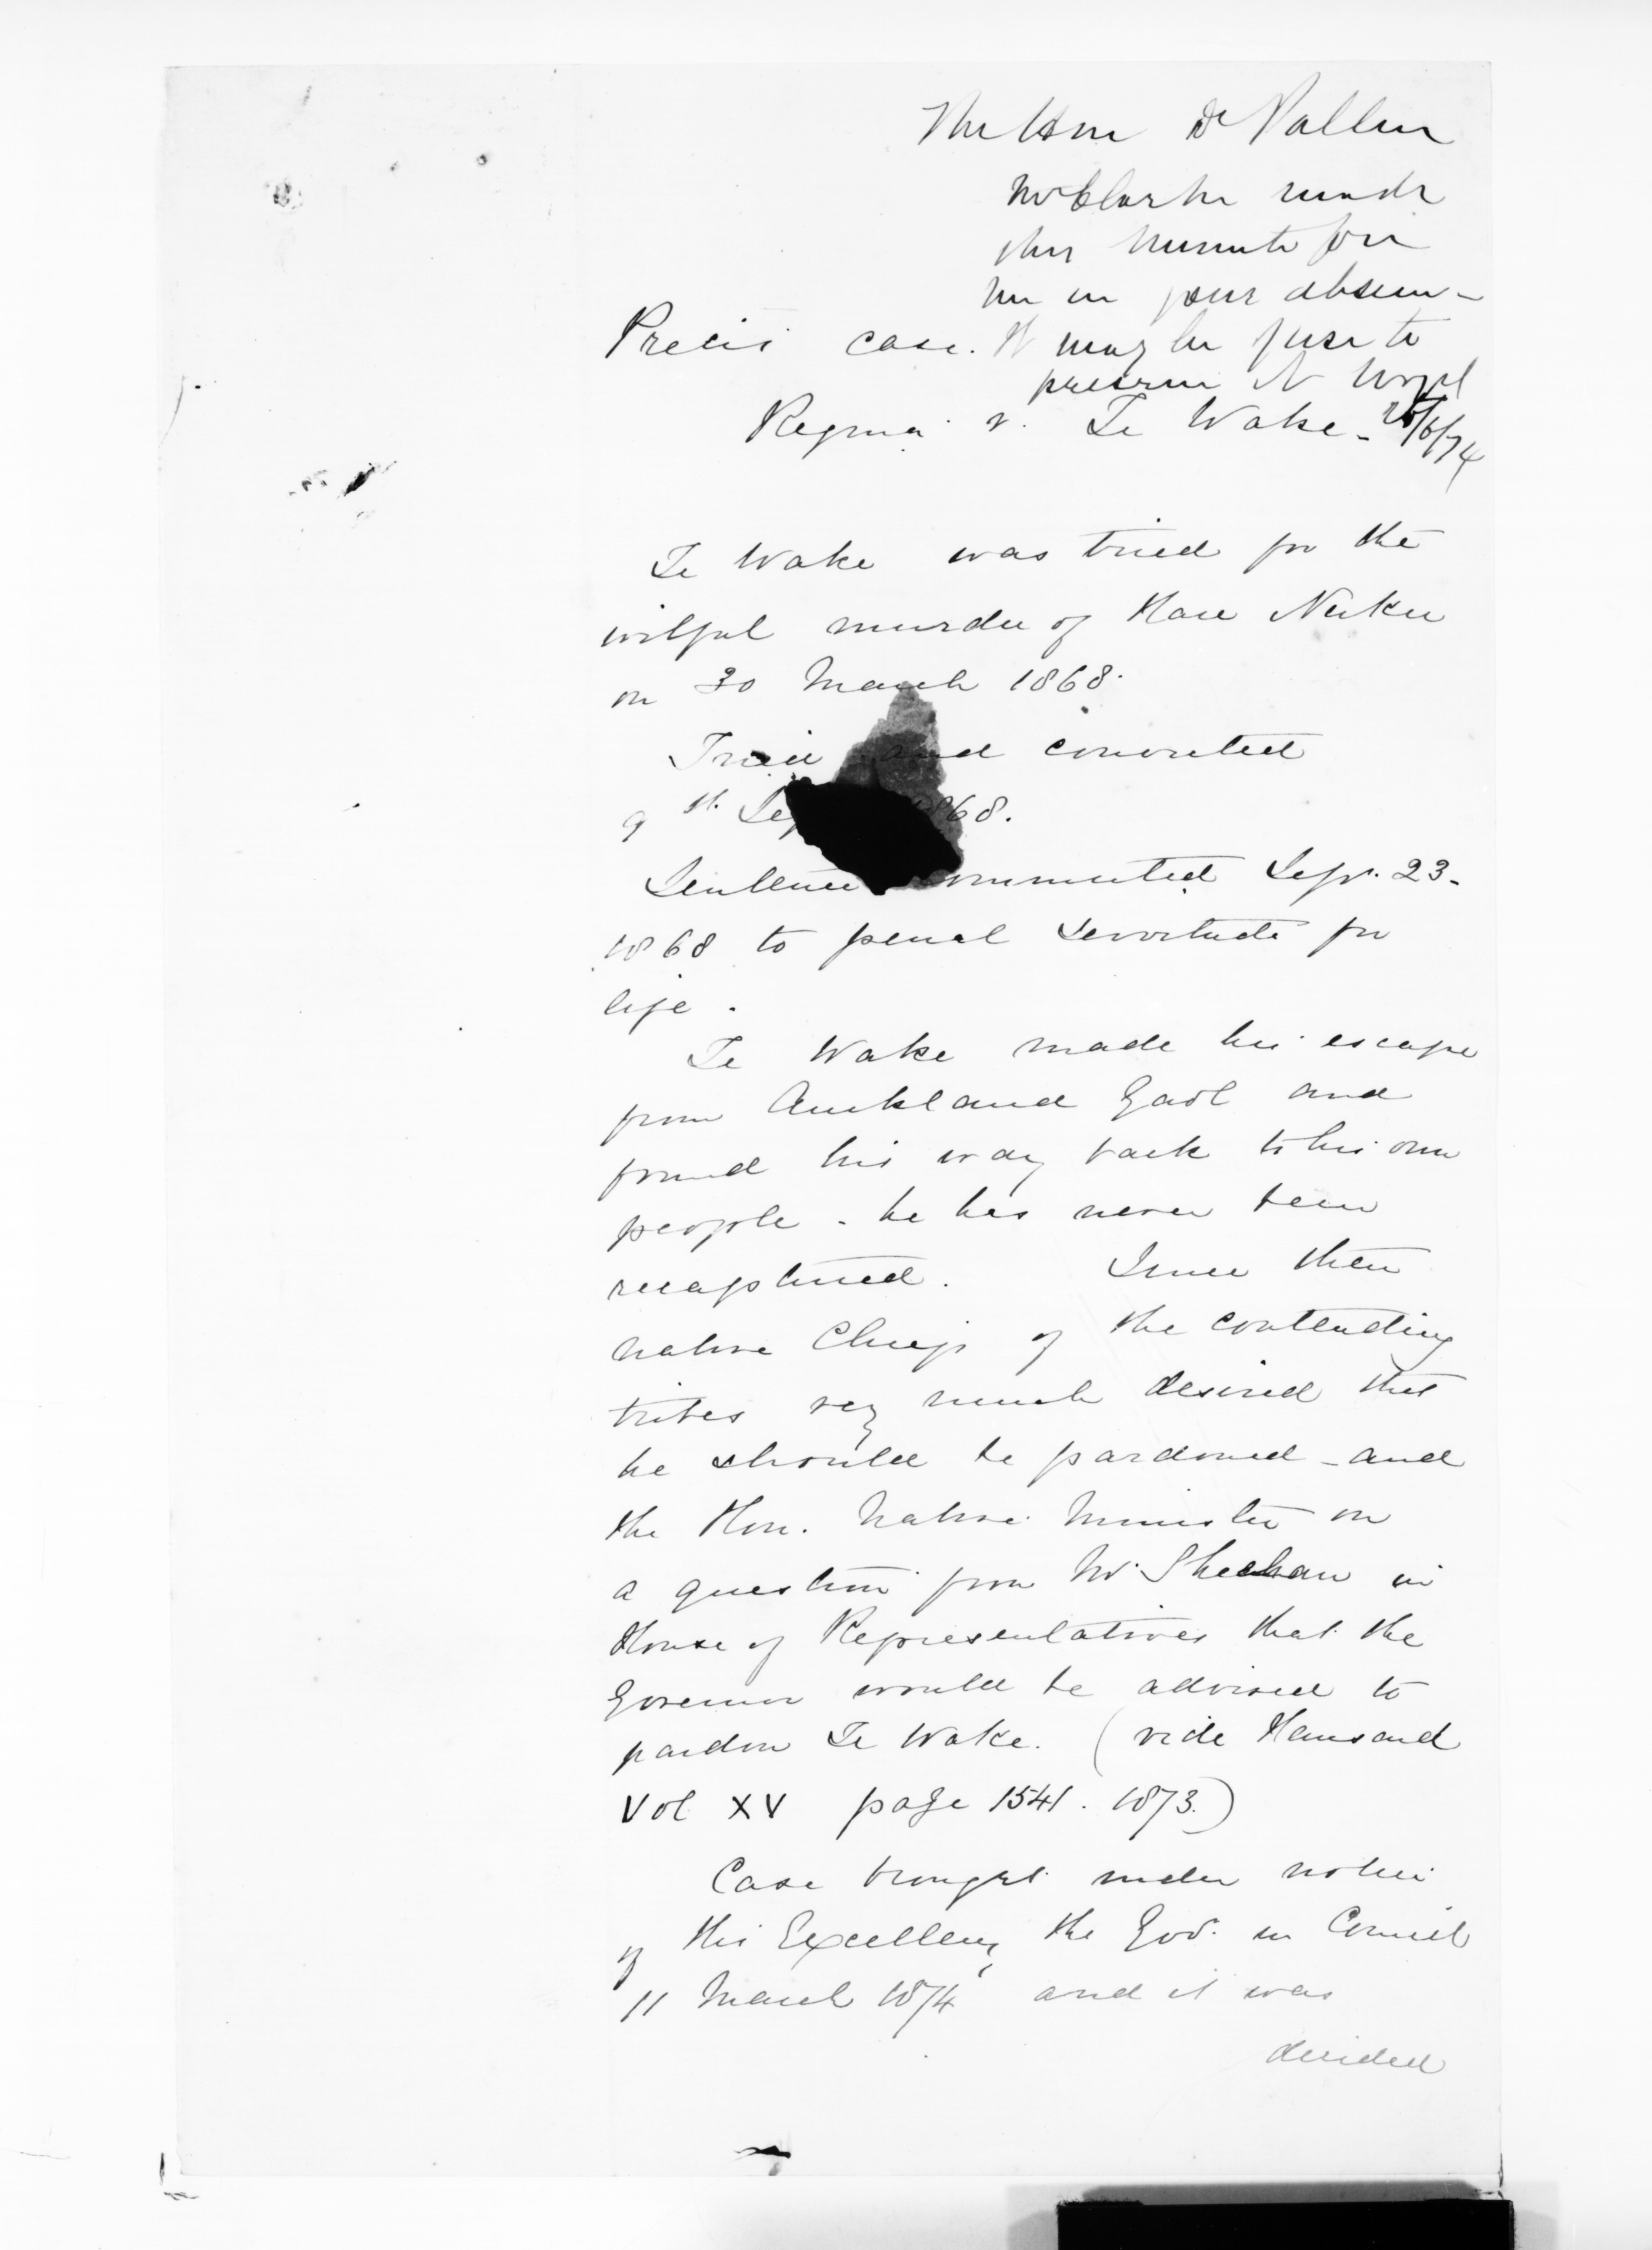 The Hon Dr Pollen
Mr Clarke made
this minute for
me in your absence
It may be of use to
preserve it
26/6/74
Precis case.
Regina v. Te Wake.
Te Wake was tried for the
wilful murder of Hare Nuku
on 30 March 1868.
Tried and convicted
9th. Sep 1868.
Sentence commuted Sepr. 23.
1868 to penal servitude for
life.
Te Wake made his escape
from Auckland Gaol and
found his way back to his own
people - he has never been
recaptured. Since then
native Chiefs of the contending
tribes very much desired that
he should be pardoned - and
the Hon. Native Minister on
a question from Mr. Sheehan in
House of Representatives that the
Governor would be advised to
pardon Te Wake. (vide Hansard
Vol XV page 1541. 1873.)
Case brought under notice
of His Excellency the Gov. in Council
11 March 1874 and it was
decided